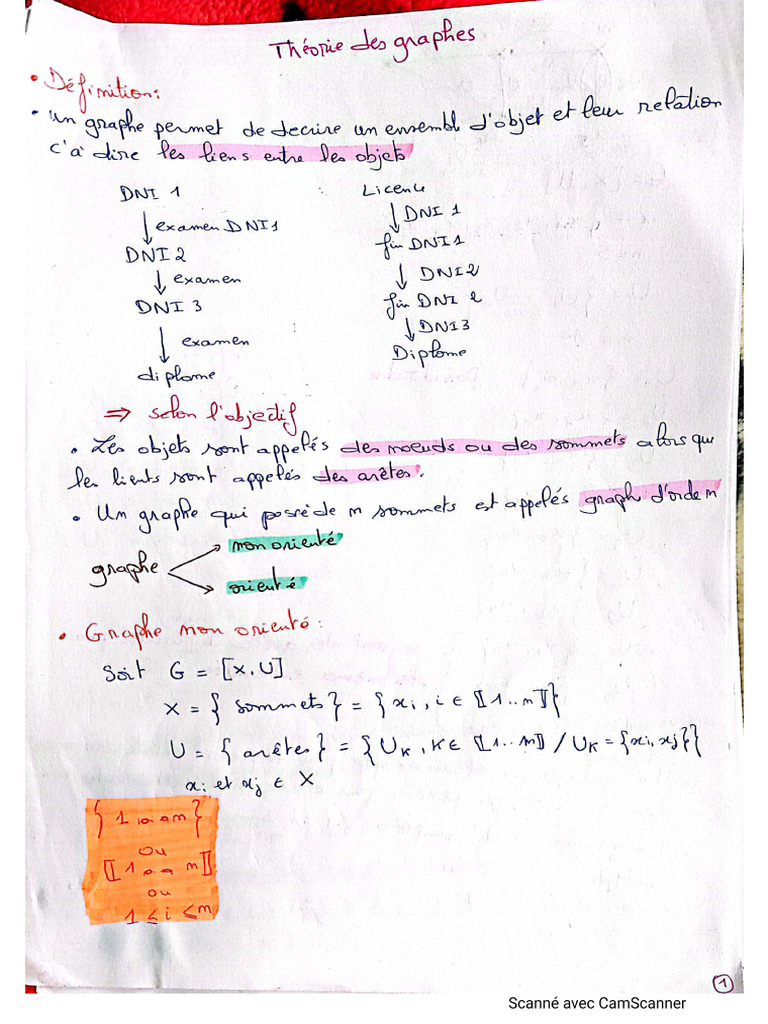 Théorie des graphes
• Définition:
• Un graphe permet de decrire un ensembl d'objet et leur relation
c'à dire les liens entre les objets
DNI 1
↓ examen DNI1
DNI 2
↓ examen
DNI 3
↓ examen
diplome
Licence
↓ DNI 1
fin DNI1
↓ DNI2
fin DNI 2
↓ DNI3
Diplome
⇒ selon l'objectif
• Les objets sont appelés des nœuds ou des sommets alors que
les lients sont appelés des arêtes.
• Un graphe qui posséde n sommets est appelés graph d'orde n
graphe
non orienté
orienté
• Graphe non orienté:
Soit G = [X, U]
X = { sommets } = { xi, i ∈ ⟦1..n⟧}
U = { arêtes } = { UK, K ∈ ⟦1..m⟧ / UK = {xi, xj}}
xi et xj ∈ X
{ 1 .. n }
ou
⟦1 .. n⟧
ou
1 ≤ i ≤ n
1
Scanné avec CamScanner